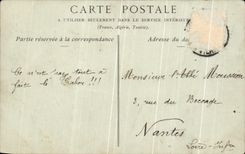 CARTE POSTALE
A UTILISER SEULEMENT DANS LE SERVICE INTÉRIEUR
(France, Algérie, Tunisie)
Partie réservée à la correspondance
Adresse du
Ce n'est pas tout à
fait le Calvo !!!
Monsieur l'Abbé
3, rue du Bocage
Nantes
Loire-Infre